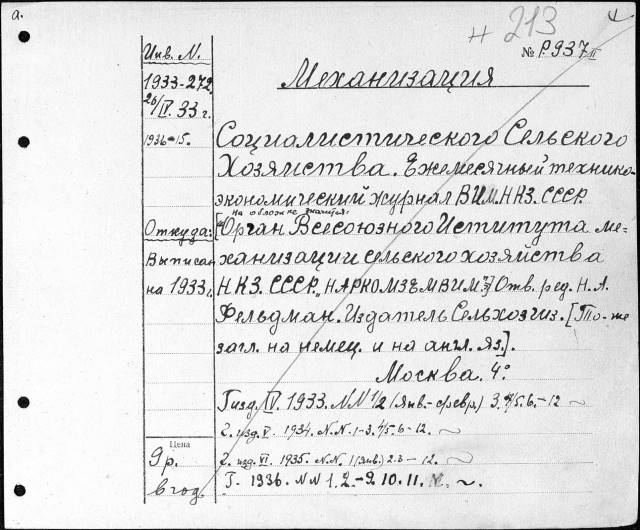 а.
н 213
4
№ Р.937 II
Инв. N.
1933-272
26/IV. 33 г.
1936-15.
Откуда:
Выписан
на 1933 г.
Цена
9 р.
в год.
Механизация
Социалистического Сельского
Хозяйства. Ежемесячный технико-
экономический журнал ВИМ. НКЗ. СССР.
на обложке значится:
[„Орган Всесоюзного Иститута ме-
ханизации сельского хозяйства
Н.К.З. СССР. „НАРКОМЗЕМ ВИМ."] Отв. ред. Н. А.
Фельдман. Издатель Сельхозгиз. [То-же
загл. на немец. и на англ. яз.].
Москва. 4°.
Г изд. IV. 1933. NN 1/2 (Янв.-февр.) 3. 4/5. 6.-12 ~
Г. изд. V. 1934. N.N. 1-3. 4/5. 6-12. ~
Г. изд. VI. 1935. N.N. 1 (Янв.) 2.3-12. ~
Г. 1936. NN 1. 2.-9. 10. 11. ~